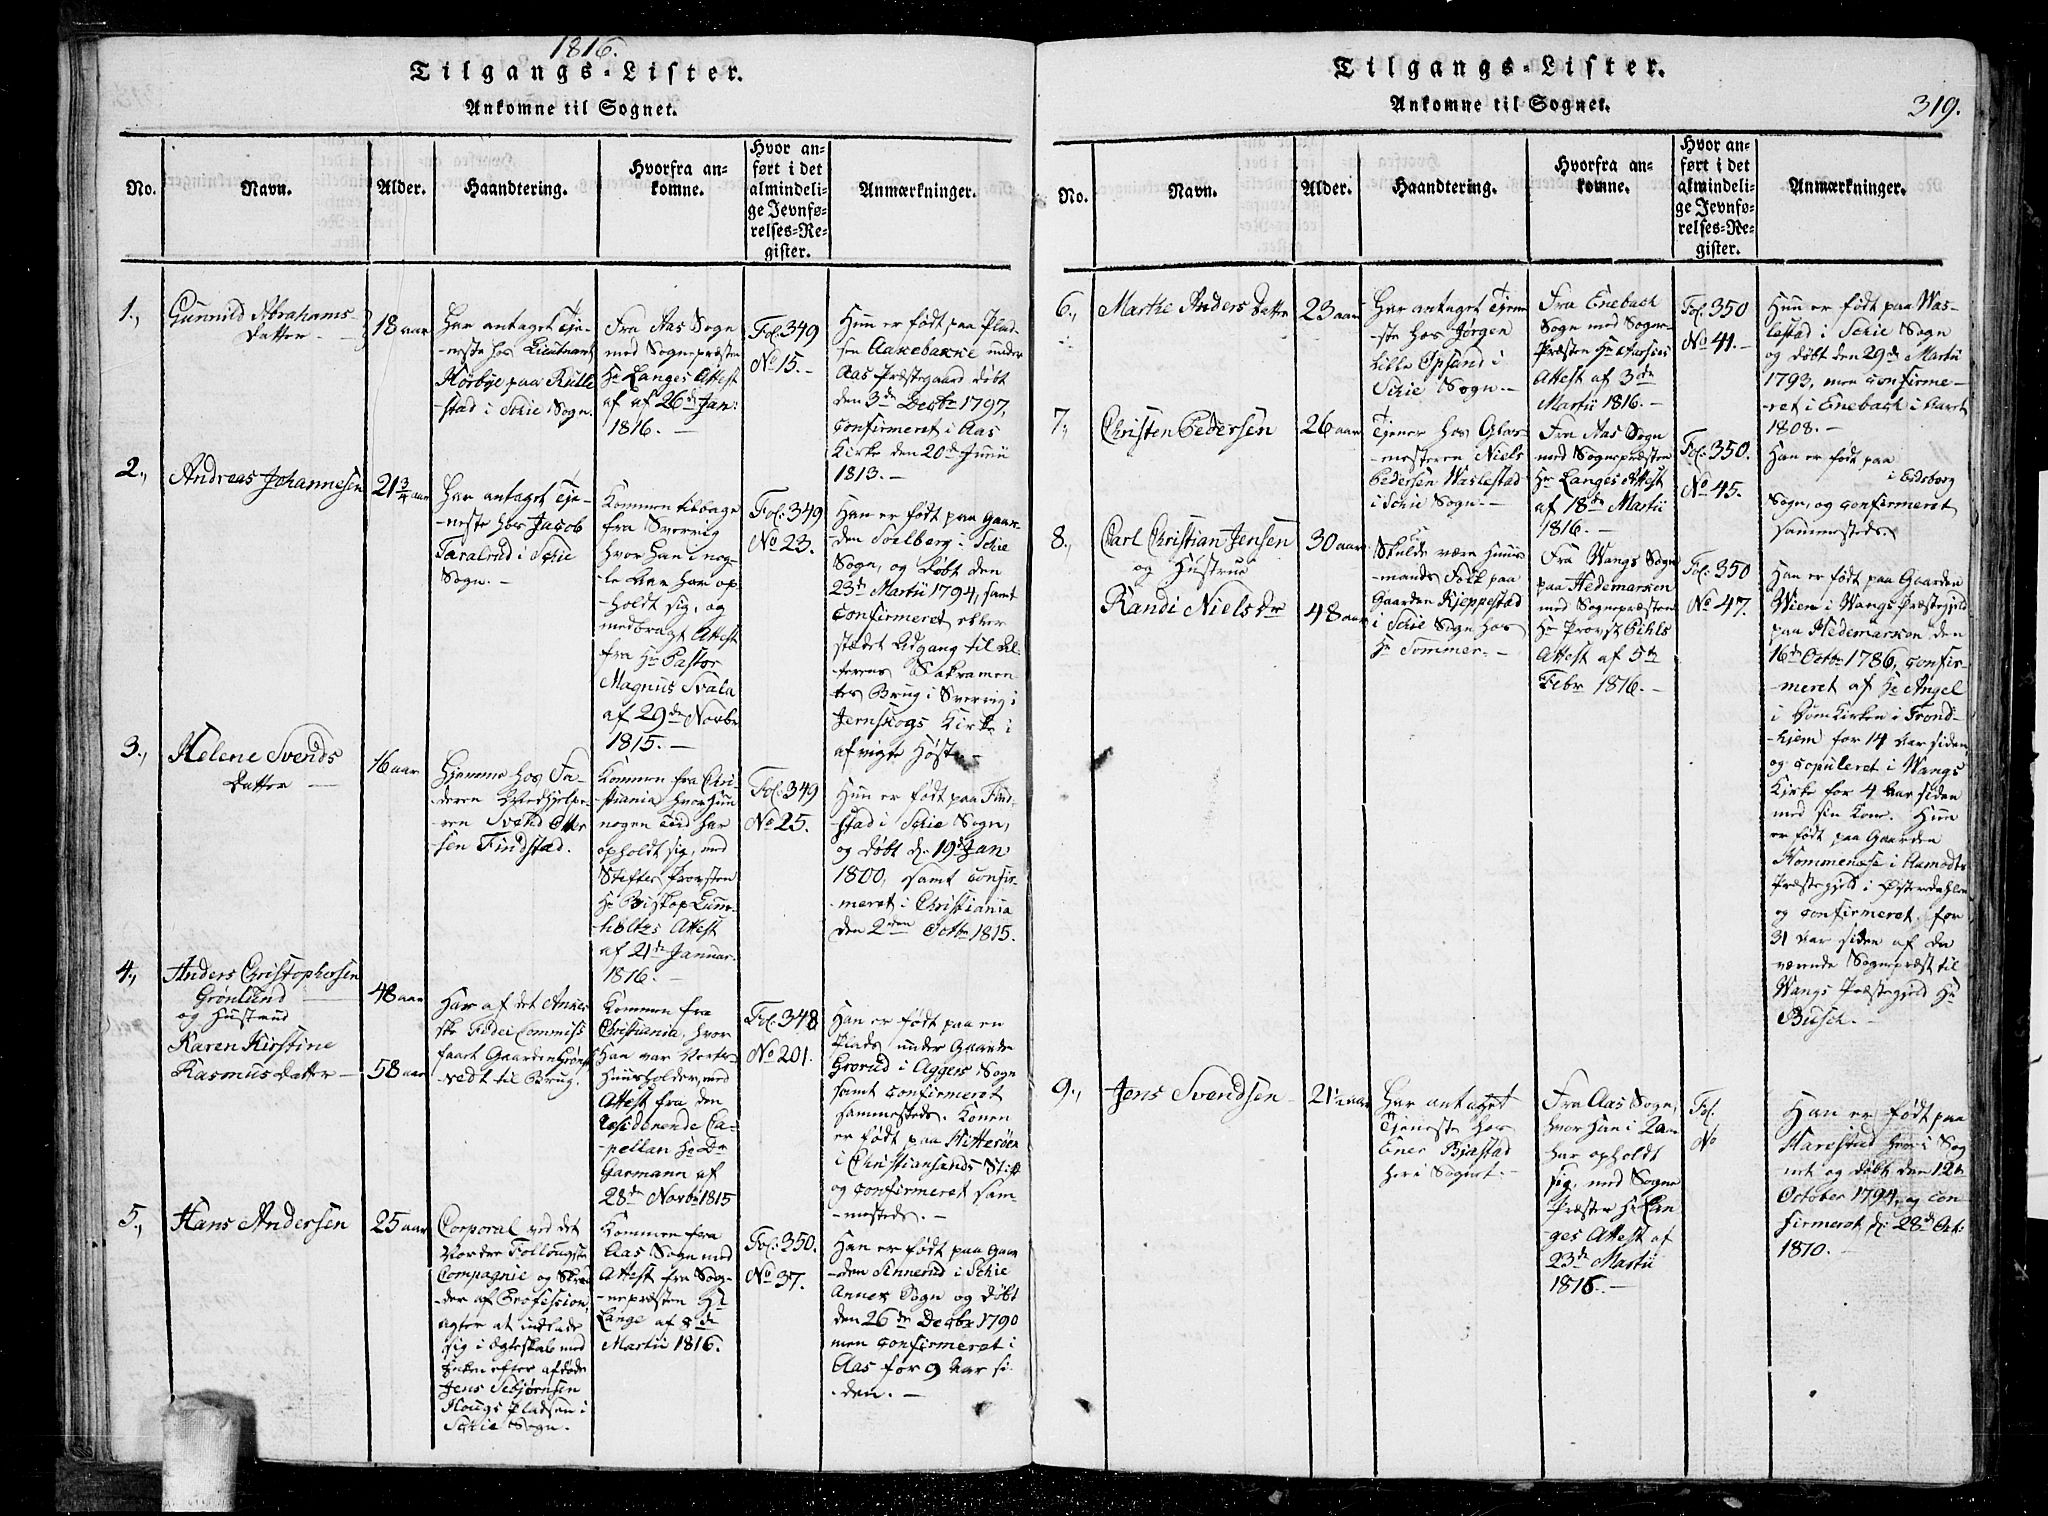 1816.
Tilgangs-Lister.
Ankomne til Sognet.
No.
Navn.
Alder.
Haandtering.
Hvorfra an-
komne.
Hvor an-
ført i det
almindeli-
ge Jevnfø-
relses-Re-
gister.
Anmærkninger.
1.,
Gunnild Abrahams
Datter
18 aar
Har antaget Tje-
-neste hos Lieutnant
Hörbye paa Rulle
stad i Schie Sogn.
Fra Aas Sogn
med Sognepræsten
Hr Langes Attest
af 26de Jan:
1816. -
Fol: 349
No 15. -
Hun er født paa Plad-
sen Aakebakke under
Aas Præstegaard døbt
den 3de Decbr 1797,
confirmeret i Aas
Kirke den 20de Junii
1813. -
2.,
Andreas Johannesen
21 3/4 aar
Har antaget Tje-
-neste hos Jacob
Taralrud i Schie
Sogn. -
Kommen tilbage
fra Sverrig
hvor han i nog-
le Aar har op-
-holdt sig, og
medbragt Attest
fra Hr Pastor
Magnus Svala
af 29de Novbr
1815. -
Fol: 349
No 23.
Han er født paa Gaar-
den Soelberg i Schie
Sogn, og døbt den
23de Martii 1794, samt
confirmeret eller
stædet Adgang til Al-
terens Sakramen-
tes Brug i Sverrig i
Jernskogs Kirke i
afvigte Høst. -
3.,
Helene Svends
Datter
16 aar
Hjemme hos Fa-
deren Medhjelpe-
ren Svend Ol
sen Findstad.
Kommen fra Chri-
-stiania hvor hun
nogen Tid har
opholdt sig, med
Stifts Provsten
Hr Biskop Lum-
holtzs Attest
af 21de Januar
1816. -
Fol: 349
No 25.
Hun er født paa Find-
stad i Schie Sogn,
og døbt d: 19de Jan
1800, samt confir-
-meret i Christiania
den 2den Octbr 1815.
4.,
Anders Christophersen
Grönlund
og Hustrud
Karen Kirstine
Rasmusdatter -
48 aar
58 aar
Har af det Anker
ske Fidei Commiss
faaet Gaarden Grønt
vedt til Brug.
Kommen fra
Christiania, hvor
han var Verts-
Huusholder, med
Attest fra den
residerende Ca-
pellan Hr Dr
Garmann af
28de Novbr 1815
Fol: 348
No 201.
Han er født paa en
Plads under Gaarden
Grorud i Aggers Sogn
samt confirmeret
sammesteds. Konen
er født paa Hitterøen
i Christiansands Stift
og confirmeret sam-
-mesteds. -
5.,
Hans Andersen
25 aar
Corporal ved det
Nordre Follougske
Compagnie og Skræd
-der af Profession,
agter at indlade
sig i Ægteskab med
Enken efter afdøde
Jens Asbjørnsen
Hougs Pladsen i
Schie Sogn.
Kommen fra
Aas Sogn med
Attest fra Sog-
-nepræsten Hr
Lange af 8de
Martii 1816.
Fol: 350.
No 37.
Han er født paa Gaar
-den Sinnerud i Schie
Annex Sogn og døbt
den 26de Decbr 1790
men confirmeret i
Aas for 9 Aar si-
-den. -
Tilgangs-Lister.
Ankomne til Sognet.
319.
No.
Navn.
Alder.
Haandtering.
Hvorfra an-
komne.
Hvor an-
ført i det
almindeli-
ge Jevnfø-
relses-Re-
gister.
Anmærkninger.
6.,
Marthe Anders Dattr
23 aar
Har antaget Tjene-
ste hos Jörgen
Lille Opsand i
Schie Sogn. -
Fra Enebach
Sogn med Sogne-
Præsten Hr
Attest af 3de
Martii 1816. -
Fol: 350
No 41. -
Hun er født paa Was-
lestad i Schie Sogn
og døbt den 29de Martii
1793, men confirme-
-ret i Enebach i Aaret
1808. -
7.,
Christen Pedersen
26 aar
Tjener hos Glar
-mesteren Niels
Pedersen Waslestad
i Schie Sogn. -
Fra Aas Sogn
med Sognepræsten
Hr Langes Attest
af 18de Martii
1816. -
Fol: 350.
No 45.
Han er født paa
i Eidsberg
Sogn, og confirmeret
sammesteds.
8.,
Carl Christian Jensen
og Hustrue
Randi Niels Dr
30 aar.
48 aar
Skulde være Huus-
mands Folk paa
Gaarden Kjeppestad
i Schie Sogn hos
Hr Sommer. -
Fra Wangs Sogn
paa Hedemarken
med Sognepræsten
Hr Provst Pihls
Attest af 5te
Febr 1816. -
Fol: 350
No 47.
Han er født paa Gaarden
Wien i Wangs Præstegjeld
paa Hedemarken den
16de Octbr 1786, confir-
-meret af Hr Angel
i Domkirken i Trond-
-hjem for 14 Aar siden,
og copuleret i Wangs
Kirke for 4 Aar siden
med sin Kone. Hun
er født paa Gaarden
Kommenæse i Aamodts
Præstegjeld i Østerdahlen
og confirmeret for
31 Aar siden af da
værende Sognepræst til
Wangs Præstegjeld Hr
Busch. -
9.,
Jens Svendsen
21 1/2 aar
Har antaget
Tjeneste hos
Ener Bjastad
her i Sognet. -
Fra Aas Sogn,
hvor han i 2 Aar
har opholdt
sig, med Sogne
Præsten Hr Lan-
ges Attest af
23de Martii
1816. -
Fol.
No
Han er født paa
Harestad her i Sog
net og døbt den 12te
October 1794, og con
firmeret d: 28de Oct:
1810. -